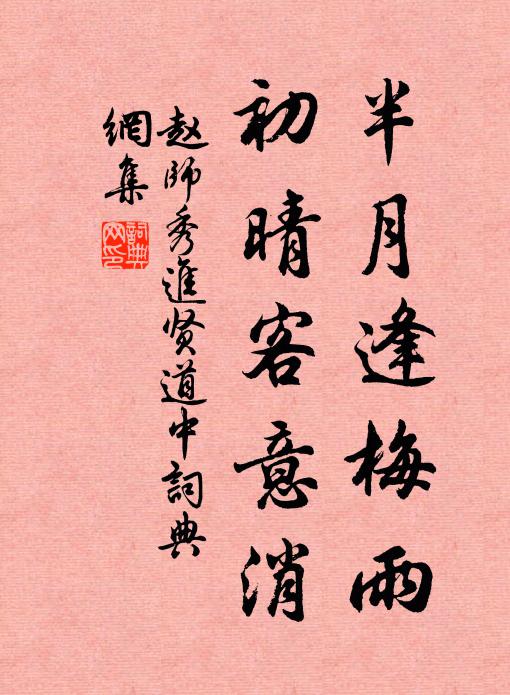 半月逢梅雨
初晴客意消
赵師秀進贤道中詞典
網集
詞典
网印